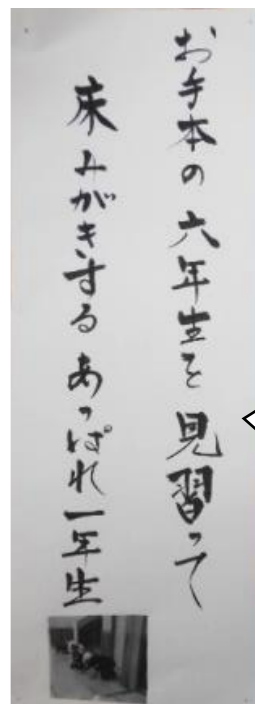 お手本の六年生を見習って
床みがきする あっぱれ一年生